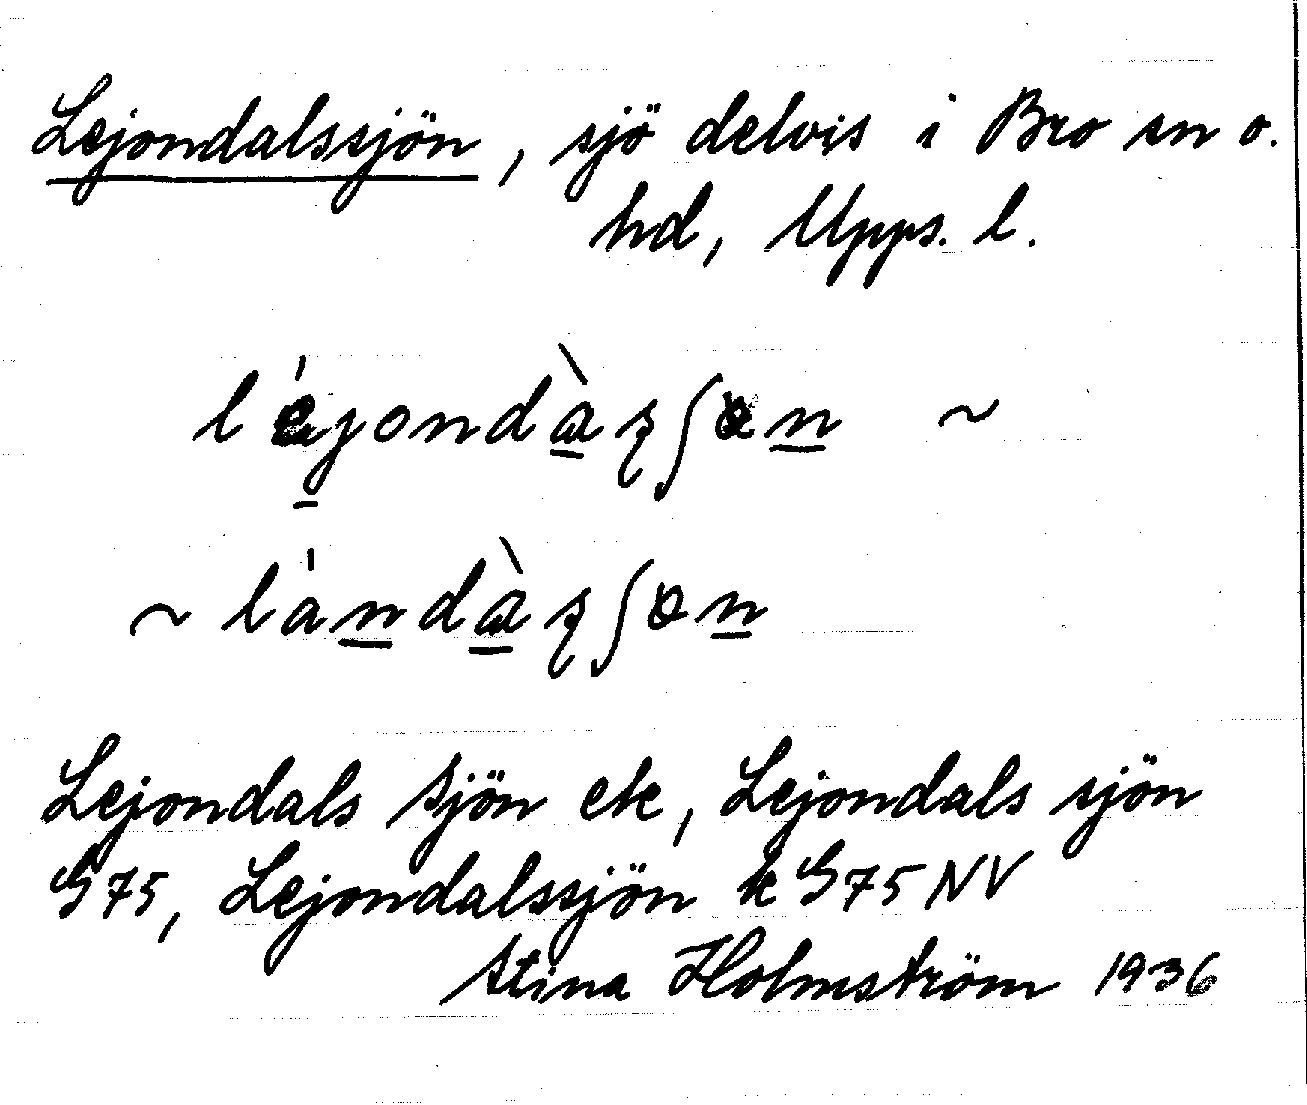 Lejondalssjön, sjö delvis i Bro sn o.
hd, Upps. l.
Lejondals sjön ek, Lejondals sjön
G75, Lejondalssjön k G75 NV
Stina Holmström 1936